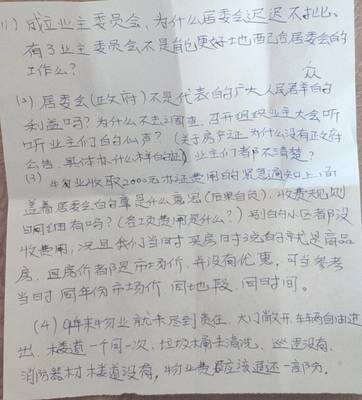 (1) 成立业主委员会、为什么居委会迟迟不批。
有了业主委员会不是能更好地配合居委会的
工作么?
(2) 居委会(政府)不是代表的广大人民群众的
利益吗?为什么不去调查、召开组织业主大会听
听业主们的心声?(关于房产证为什么没有政府
公告、具体办什么样的证)业主们都不清楚?
(3) 物业收取2000元办证费用的紧急通知上、面
盖着居委会的章是什么意思(后果自负)、收费规则
明细有吗?(各项费用是什么?)别的小区都没
收费用,况且我们当时买房时说的就是商品
房、且房价都是市场价、并没有优惠,可当参考
当时同年份市场价 同地段、同时间。
(4) 4年来物业就未尽到责任、大门敞开、车辆自由进
出、楼道一个月一次、垃圾桶未清洗、巡逻没有、
消防器材楼道没有,物业费是应该退还一部分。